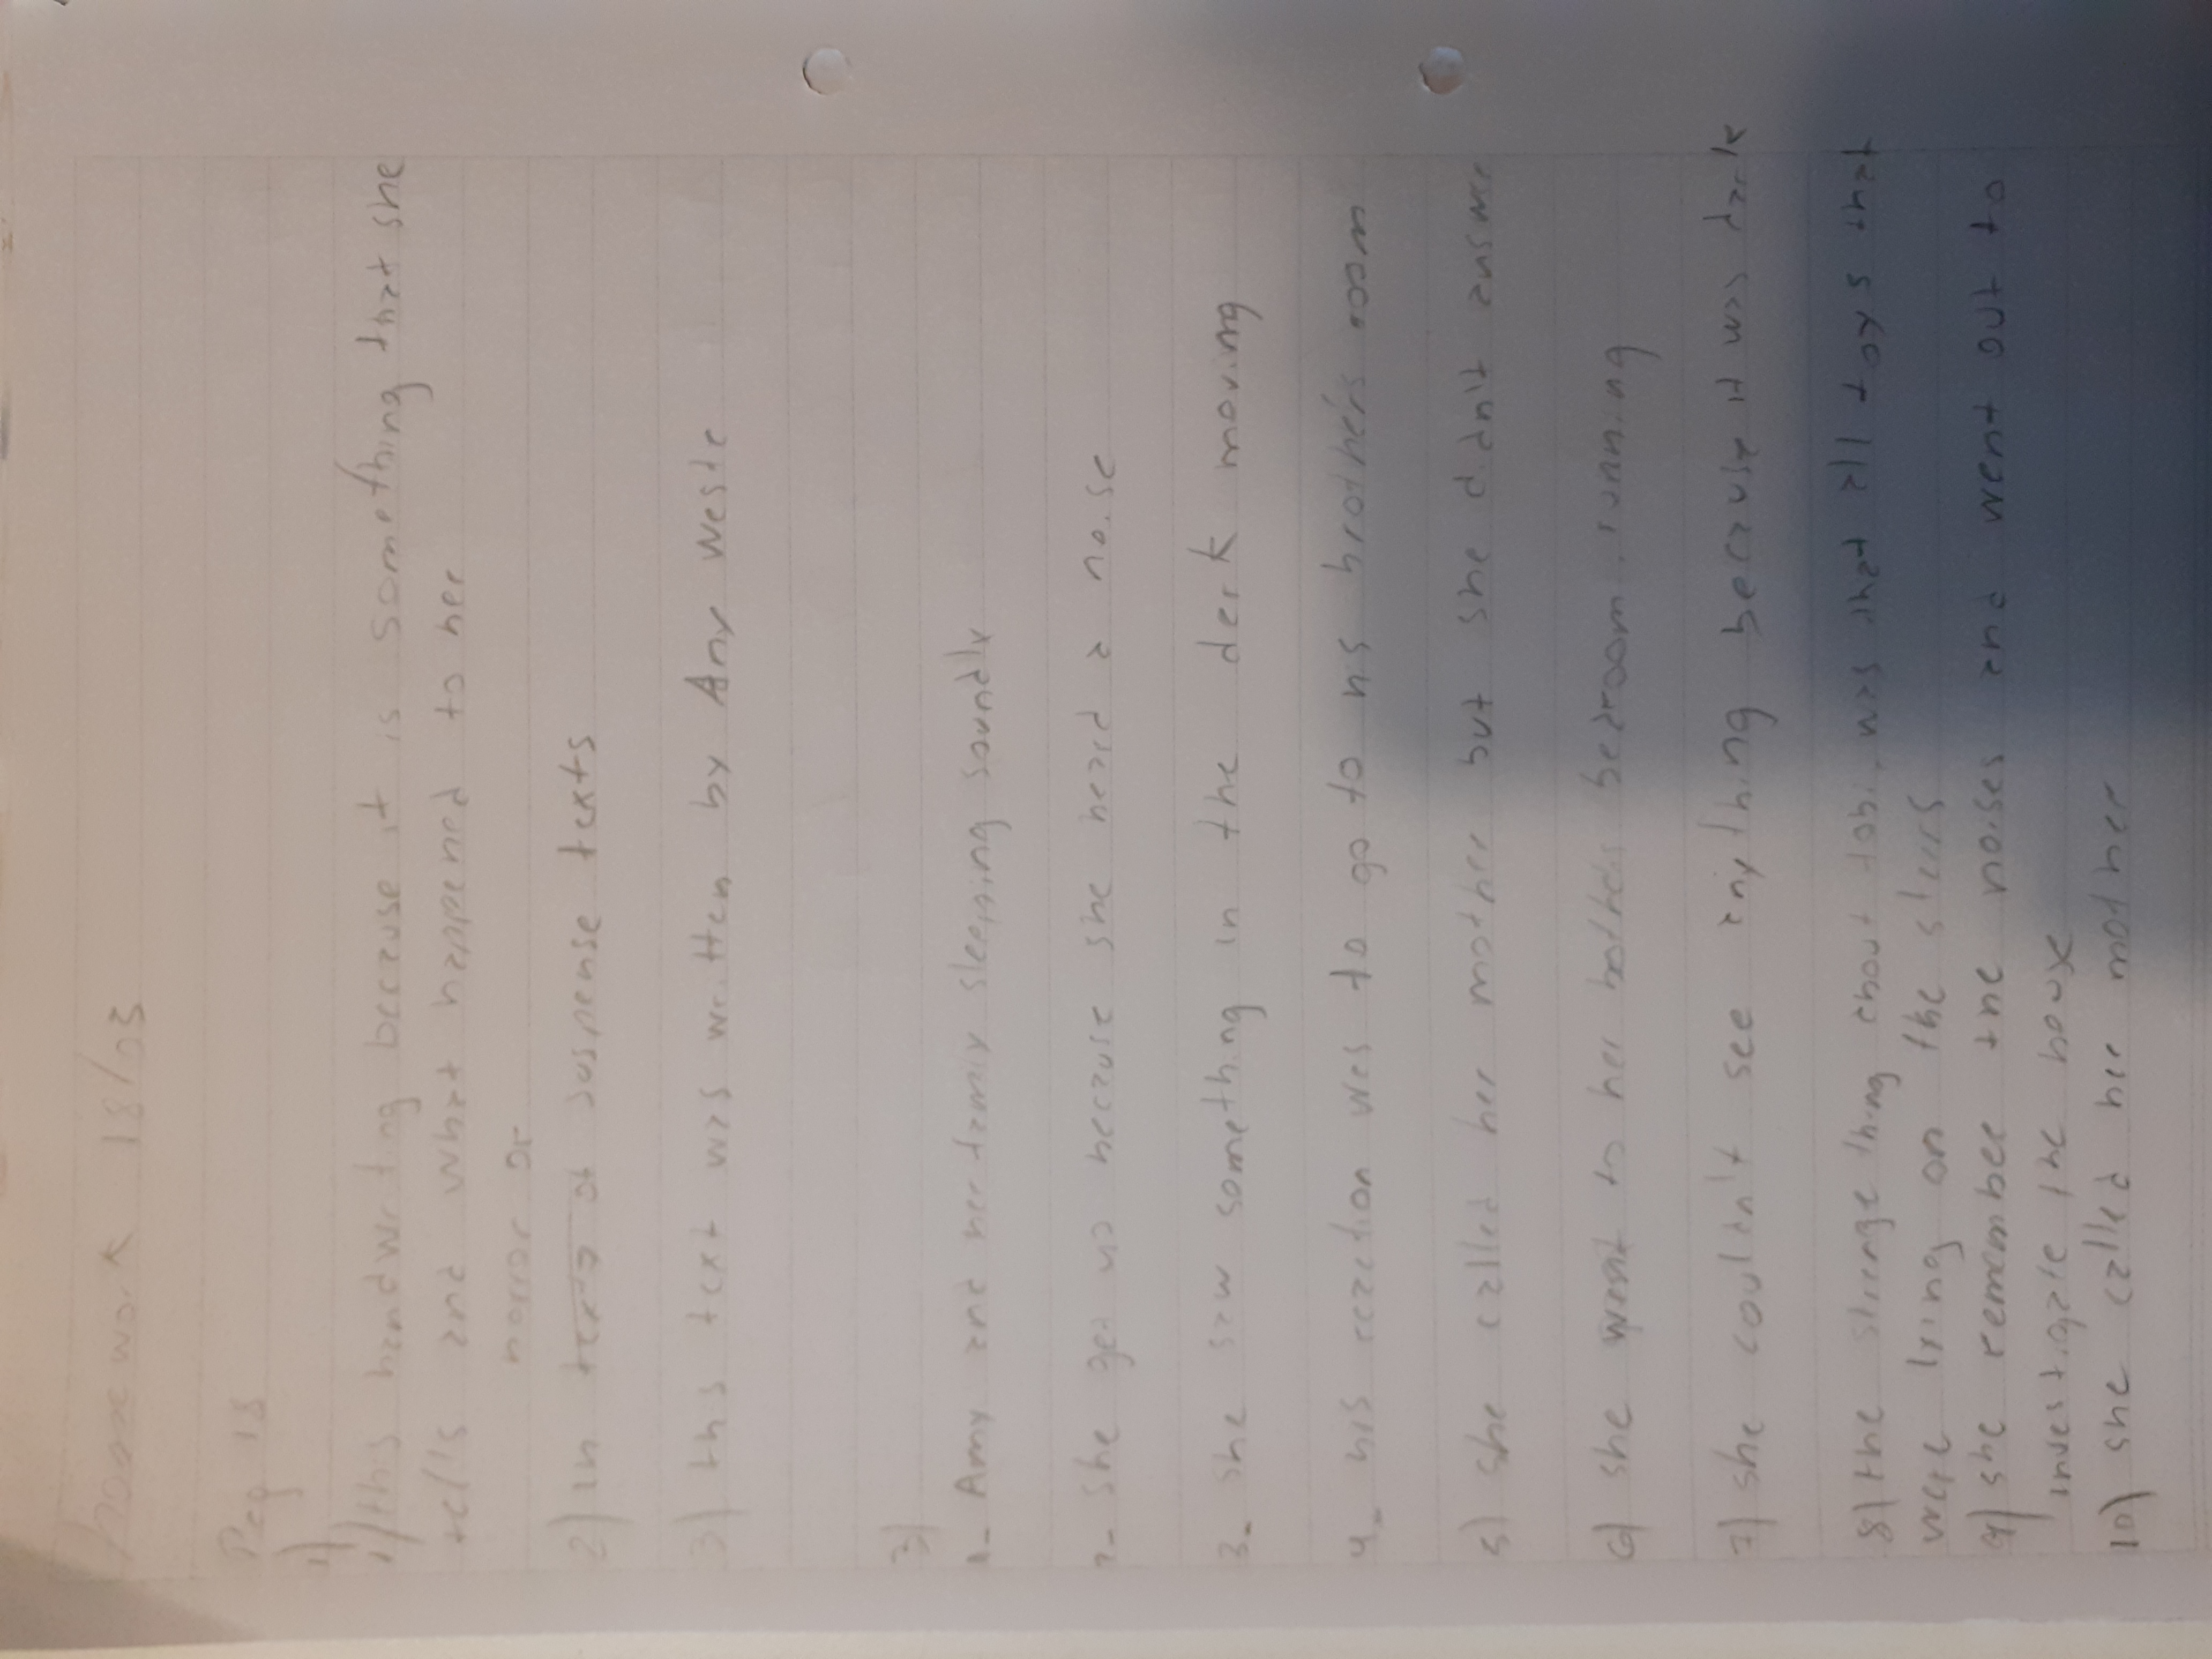 homework 18/03
Pag 13
1)
1) this handwriting because it is something that she
tells and what happened to her
horror or
2) in terro of suspense texts
3) this text was written by Any weste
2)
1- Amy and her family sleeping soundly
2- she get up because she heard a noise
3- she saw something in the derk moving
4- his reaction wes to go to his brother's room
5) she called her mother but she didn't
6) she went to her bothers bedroom running
7) she couldn't see anything because it was dark
8) the strenge thing about tobi was that all toys that
were lying on the steirs
9) she remember the noises and went out to
investigate the houx
10) she called her mother